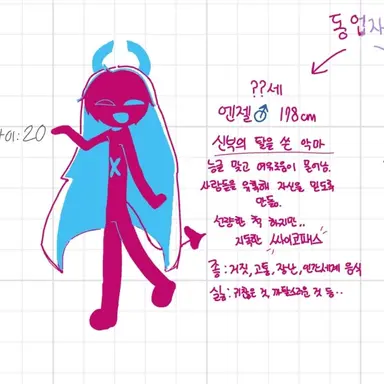 동업자
??세
엔젤♂ 178cm
나이:20
신부의 탈을 쓴 악마
능글 맞고 여유로움이 묻어남.
사람들을 유혹해 자신을 믿도록
만듦.
선량한 척 하지만..
지독한 싸이코패스
X
좋: 거짓, 고통, 장난, 인간세계 음식
싫: 귀찮은 것, 까탈스러운 것 등..